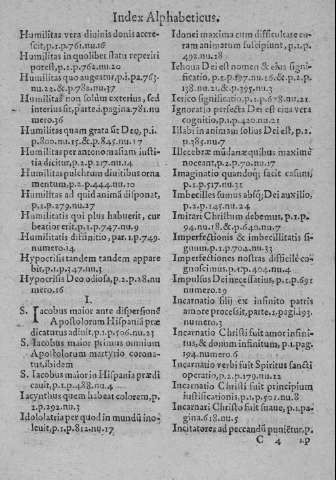 Index Alphabeticus.
Humilitas vera diuinis donis accre-
scit, p.1.p.761.nu.16
Humilitas in quolibet statu reperiri
potest, p.1.p.762.nu.20
Humilitas quo augeatur, p.1.pa.763.
nu.22.&.p.782.nu.37
Humilitas non solùm exterius, sed
interius sit, parte.1.pagina.781.nu
mero.36
Humilitas quam grata sit Deo, p.1.
p.800.nu.15.&.p.845.nu.17
Humilitas per antonomasiam iusti-
tia dicitur, p.2.p.217.nu.14
Humilitas pulchrum diuitibus orna
mentum, p.2.p.444.nu.10
Humilitas ad quid animā disponat,
p.1.p.279.nu.27
Humilitatis qui plus habuerit, cur
beatior erit, p.1.p.747.nu.9
Humilitatis difinitio, par.1.p.749.
numero.14
Hypocrisis tandem tandem appare
bit, p.1.p.347.nu.3
Hypocrisis Deo odiosa, p.2.p.28.nu
mero.16
I.
S. Iacobus maior ante dispersionē
Apostolorum Hispaniā præ
dicaturus adiuit, p.1.p.506.nu.23
S. Iacobus maior primus omnium
Apostolorum martyrio corona-
tut, ibidem
S. Iacobus maior in Hispania prædi
cauit, p.1.p.488.nu.4
Iacynthus quem habeat colorem, p.
2.p.292.nu.3
Idololatria per quod in mundū ino-
leuit, p.1.p.812.nu.17
Idonei maxima cum difficultate cu-
ram animarum suscipiunt, p.1.p.
492.nu.28
Iehoua Dei est nomen & eius signi-
ficatio, p.1.p.597.nu.16.&.p.2.p.
138.nu.21.&.p.395.nu.3
Ierico significatio, p.1.p.678.nu.21.
Ignorantia perfecta Dei est eius vera
cognitio, p.1.p.420.nu.21
Illabi in animam solius Dei est, p.2.
p.385.nu.7
Illecebræ mūdanæ quibus maximè
noceant, p.2.p.70.nu.17
Imaginatio quandoq; facit casum,
p.1.p.517.nu.31
Imbecilles sumus absq; Dei auxilio,
p.2.p.145.nu.24
Imitari Christum debemus, p.1.p.
94.nu.18.&.p.640.nu.7
Imperfectionis & imbecillitatis si-
gnum, p.1.p.704.nu.33
Imperfectiones nostras difficilè co-
gnoscimus, p.1.p.404.nu.4
Impulsus Dei necessatius, p.1.p.691
numero.29
Incarnatio filij ex infinito patris
amore processit, parte.1.pagi.193.
numero.3
Incarnatio Christi fuit amor infini-
tus, & donum infinitum, p.1.pag.
194.numero.6
Incarnatio verbi fuit Spiritus sancti
operatio, p.2.p.179.nu.12
Incarnatio Christi fuit principium
iustificationis, p.1.p.501.nu.8
Incarnari Christo fuit suaue, p.1.pa-
gina.618.nu.5
Incitatores ad peccandū punietur, p.
C 4 1.p